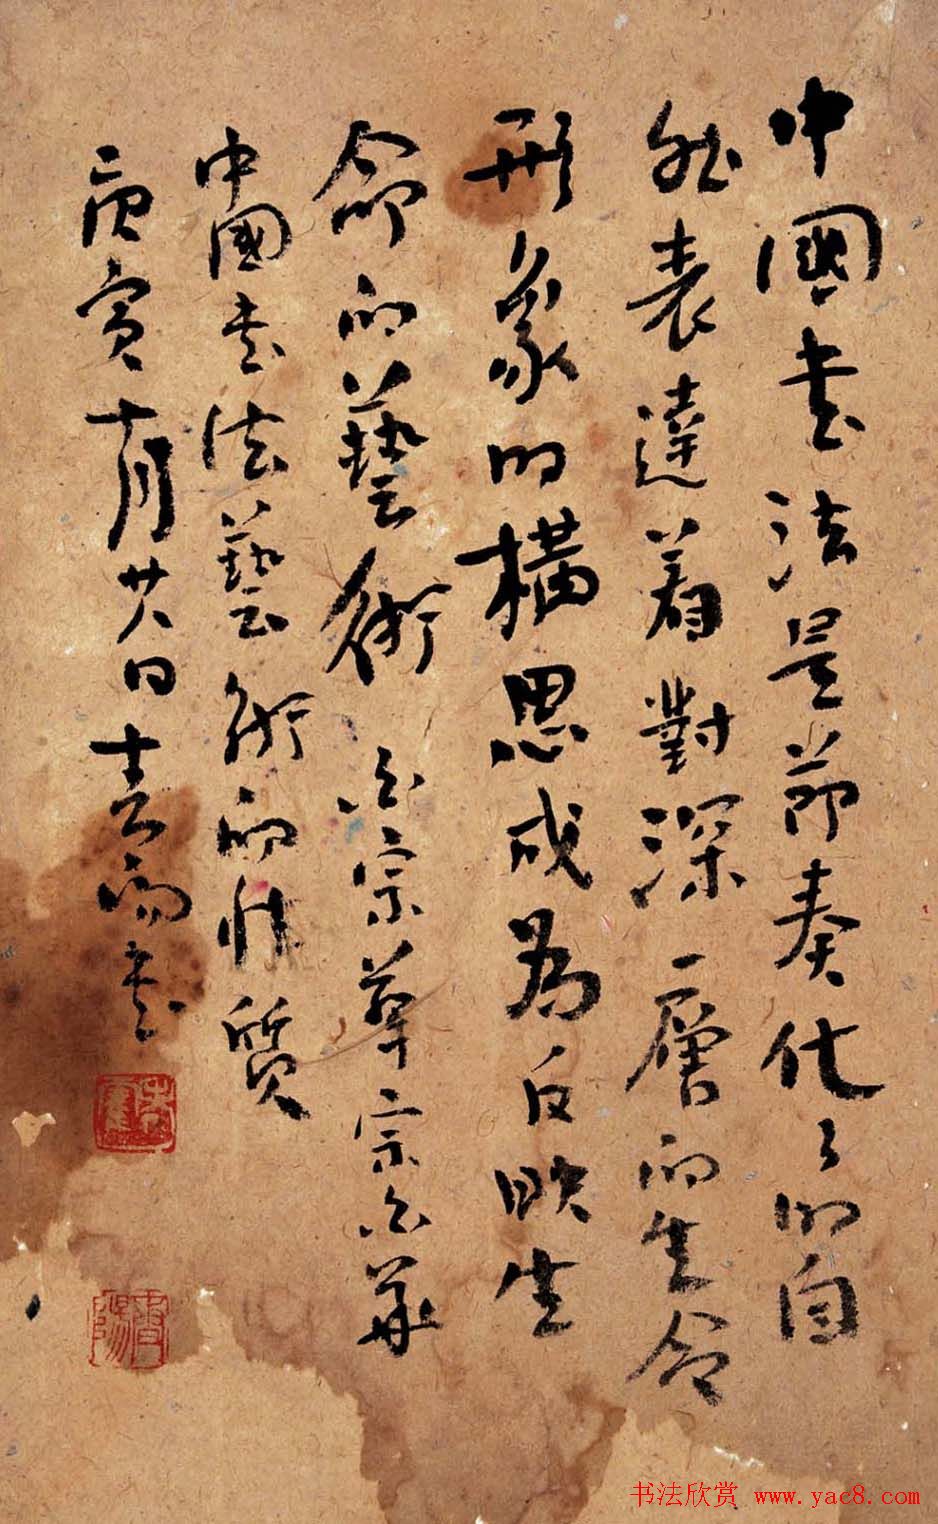 中國书法是節奏化了的自
然表達着對深一層的生命
形象的構思成為反映生
命的藝術 白宗華宗白華
中國书法藝術的性質
庚寅十月廿八日书
书法欣赏 www.yac8.com